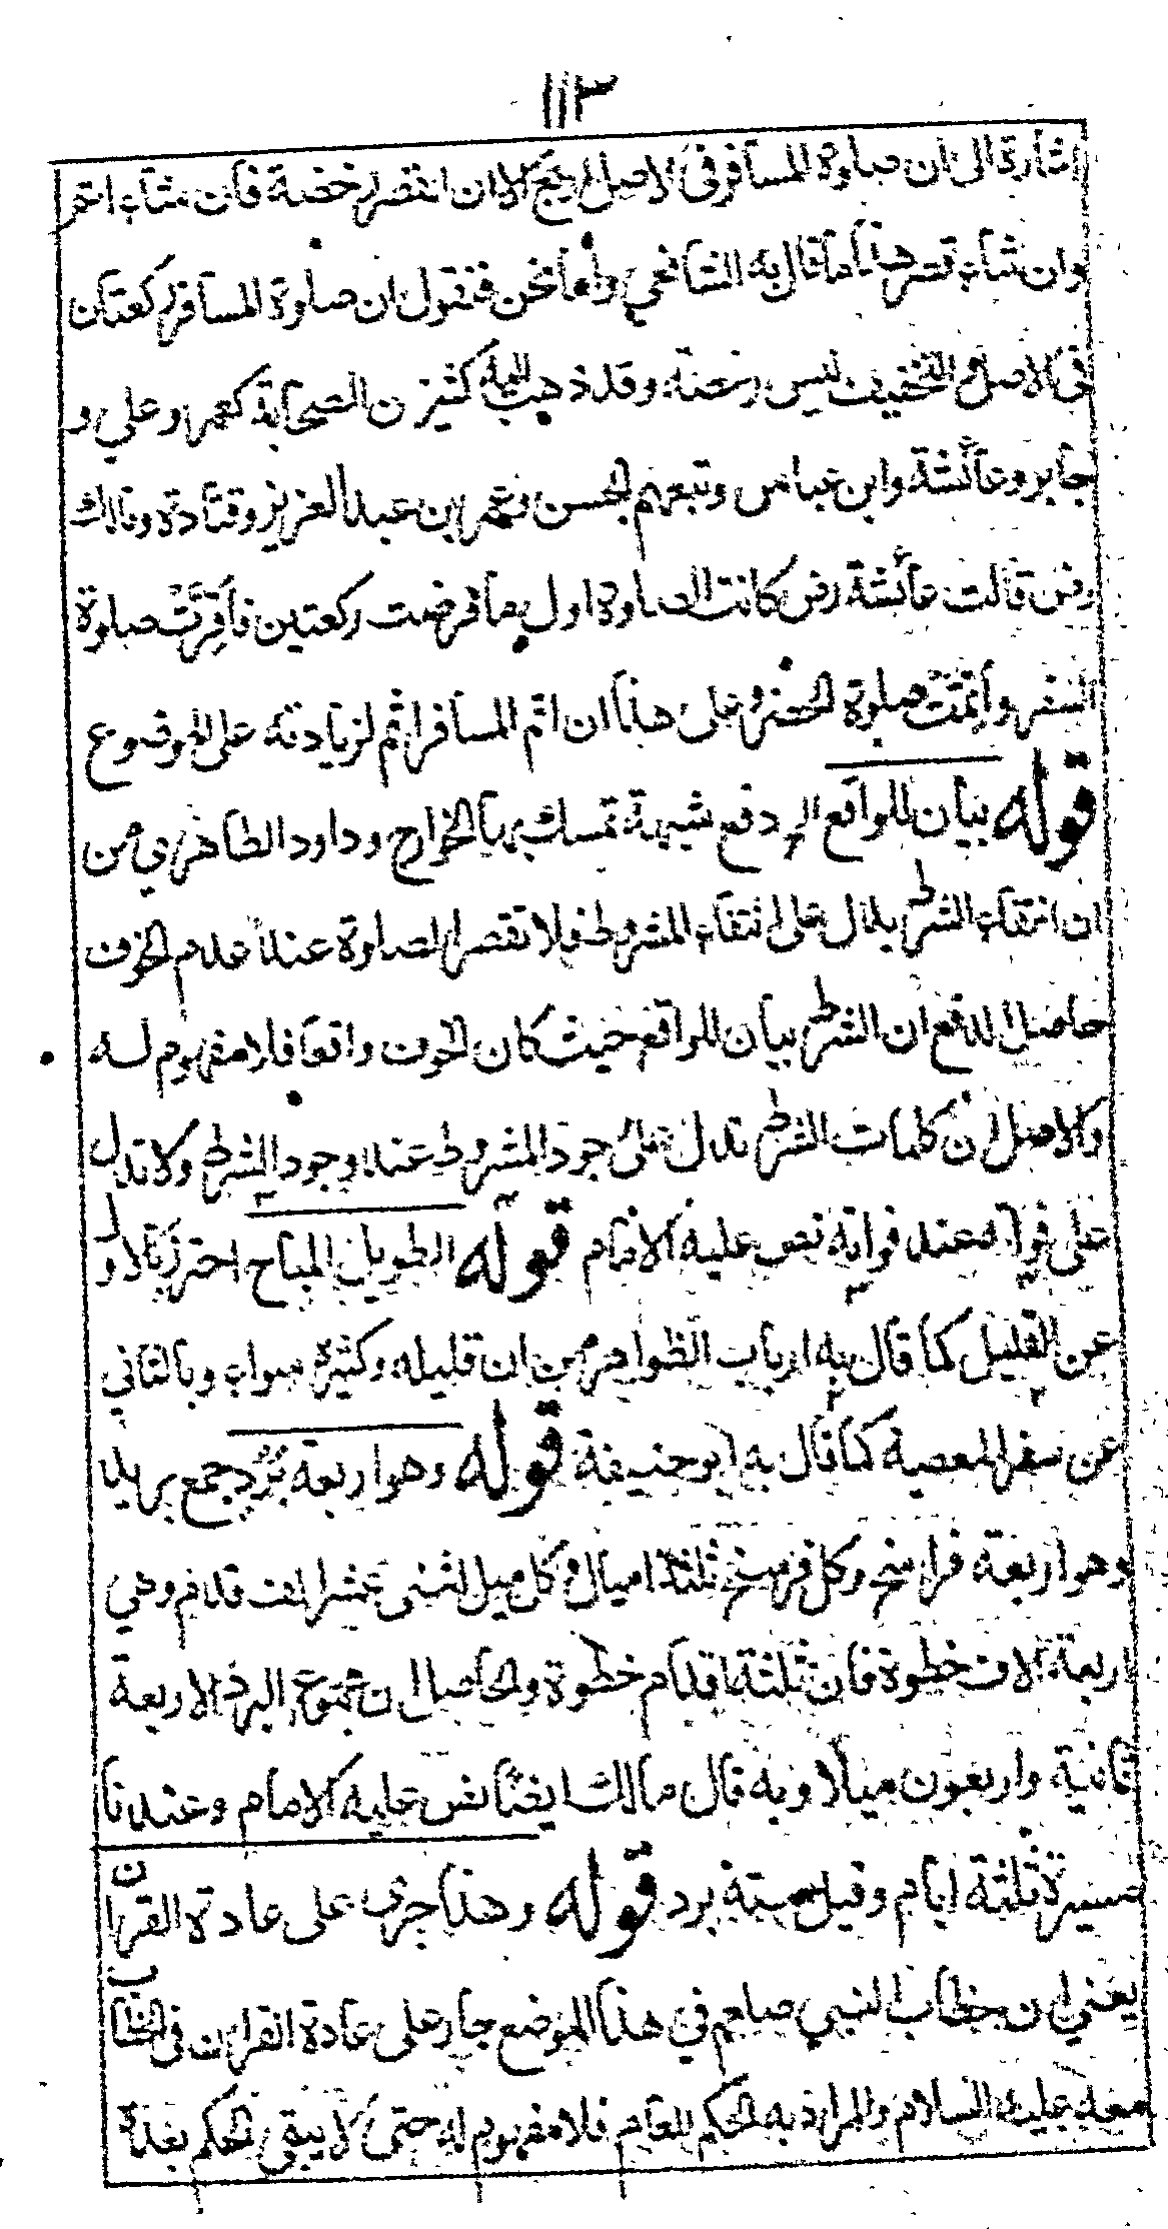 ١١٣
اشارة الى ان صلوة المسافر فى الاصل اربع الا ان القصر رخصة فان شاء اتم
وان شاء قصر هذا ما قال به الشافعي واما نحن فنقول ان صلوة المسافر ركعتان
فى الاصل والتخفيف ليس رخصة وقد ذهب اليه كثير من الصحابة كعمر وعلي و
جابر وعائشة وابن عباس وتبعهم الحسن وعمر بن عبد العزيز وقتادة ومالك
وقالت عائشة رض كانت الصلوة اول ما فرضت ركعتين فاقرت صلوة
السفر واتمت صلوة الحضر وعلى هذا ان اتم المسافر اثم لزيادته على الموضوع
قوله بيان للواقع الى دفع شبهة تمسك بها الخوارج وداود الظاهري من
ان انتفاء الشرط يدل على انتفاء المشروط فلا تقصر الصلوة عند عدم الخوف
حاصل الدفع ان الشرط بيان للواقع حيث كان الخوف واقعا فلا مفهوم له
والاصل ان كلمات الشرط تدل على وجود المشروط عند وجود الشرط ولا تدل
على فواته عند فواته نص عليه الامام قوله الطويل المباح احترز بالاول
عن القليل كما قال به ارباب الظواهر من ان قليله وكثيره سواء وبالثاني
عن سفر المعصية كما قال به ابو حنيفة قوله وهو اربعة برد جمع بريد
وهو اربعة فراسخ وكل فرسخ ثلثة اميال وكل ميل اثنى عشر الف قدم وهي
اربعة الاف خطوة فان ثلثة اقدام خطوة والحاصل ان مجموع البرد الاربعة
ثمانية واربعون ميلا وبه قال مالك ايضا نص عليه الامام وعندنا
مسيرة ثلثة ايام وقيل ستة برد قوله وهذا جرى على عادة القران
يعني ان خطاب النبي صلعم في هذا الموضع جار على عادة القران فى الخطاب
معه عليه السلام والمراد به الحكم العام فلا مفهوم له حتى لا يبقى الحكم بعده